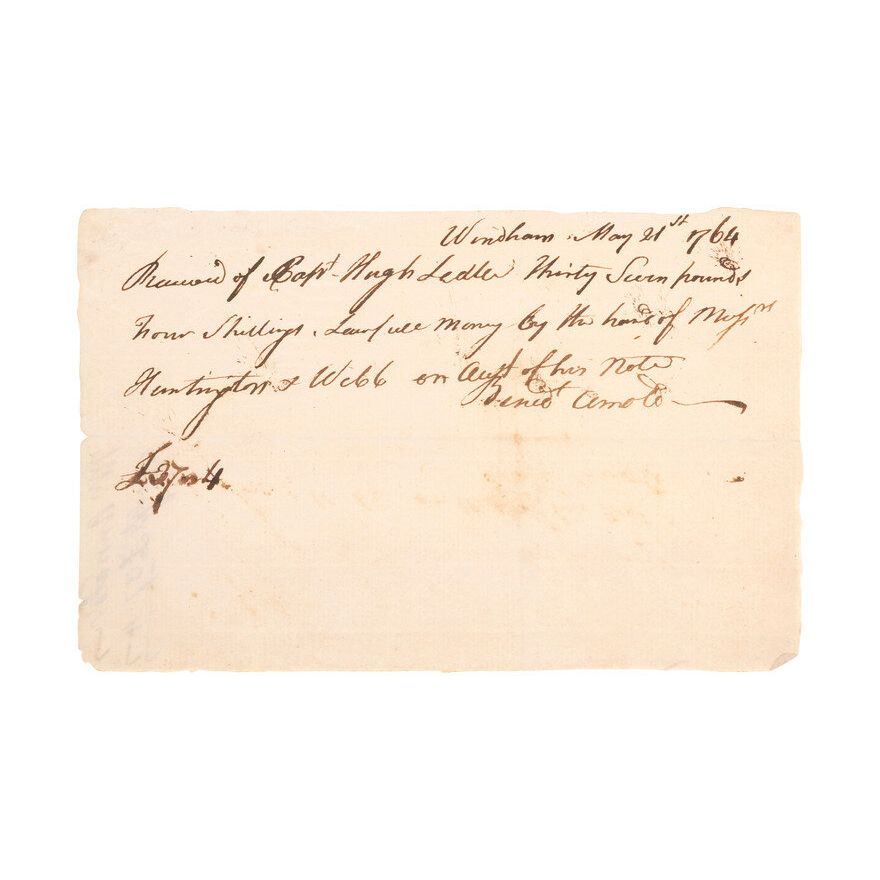 Windham May 21st 1764
Received of Capt Hugh Ledlie Thirty Seven pounds
Four Shillings Lawfull Money by the hand of Messrs
Huntington & Webb on Acct of his Note
Bened^t Arnold
£37 " 4